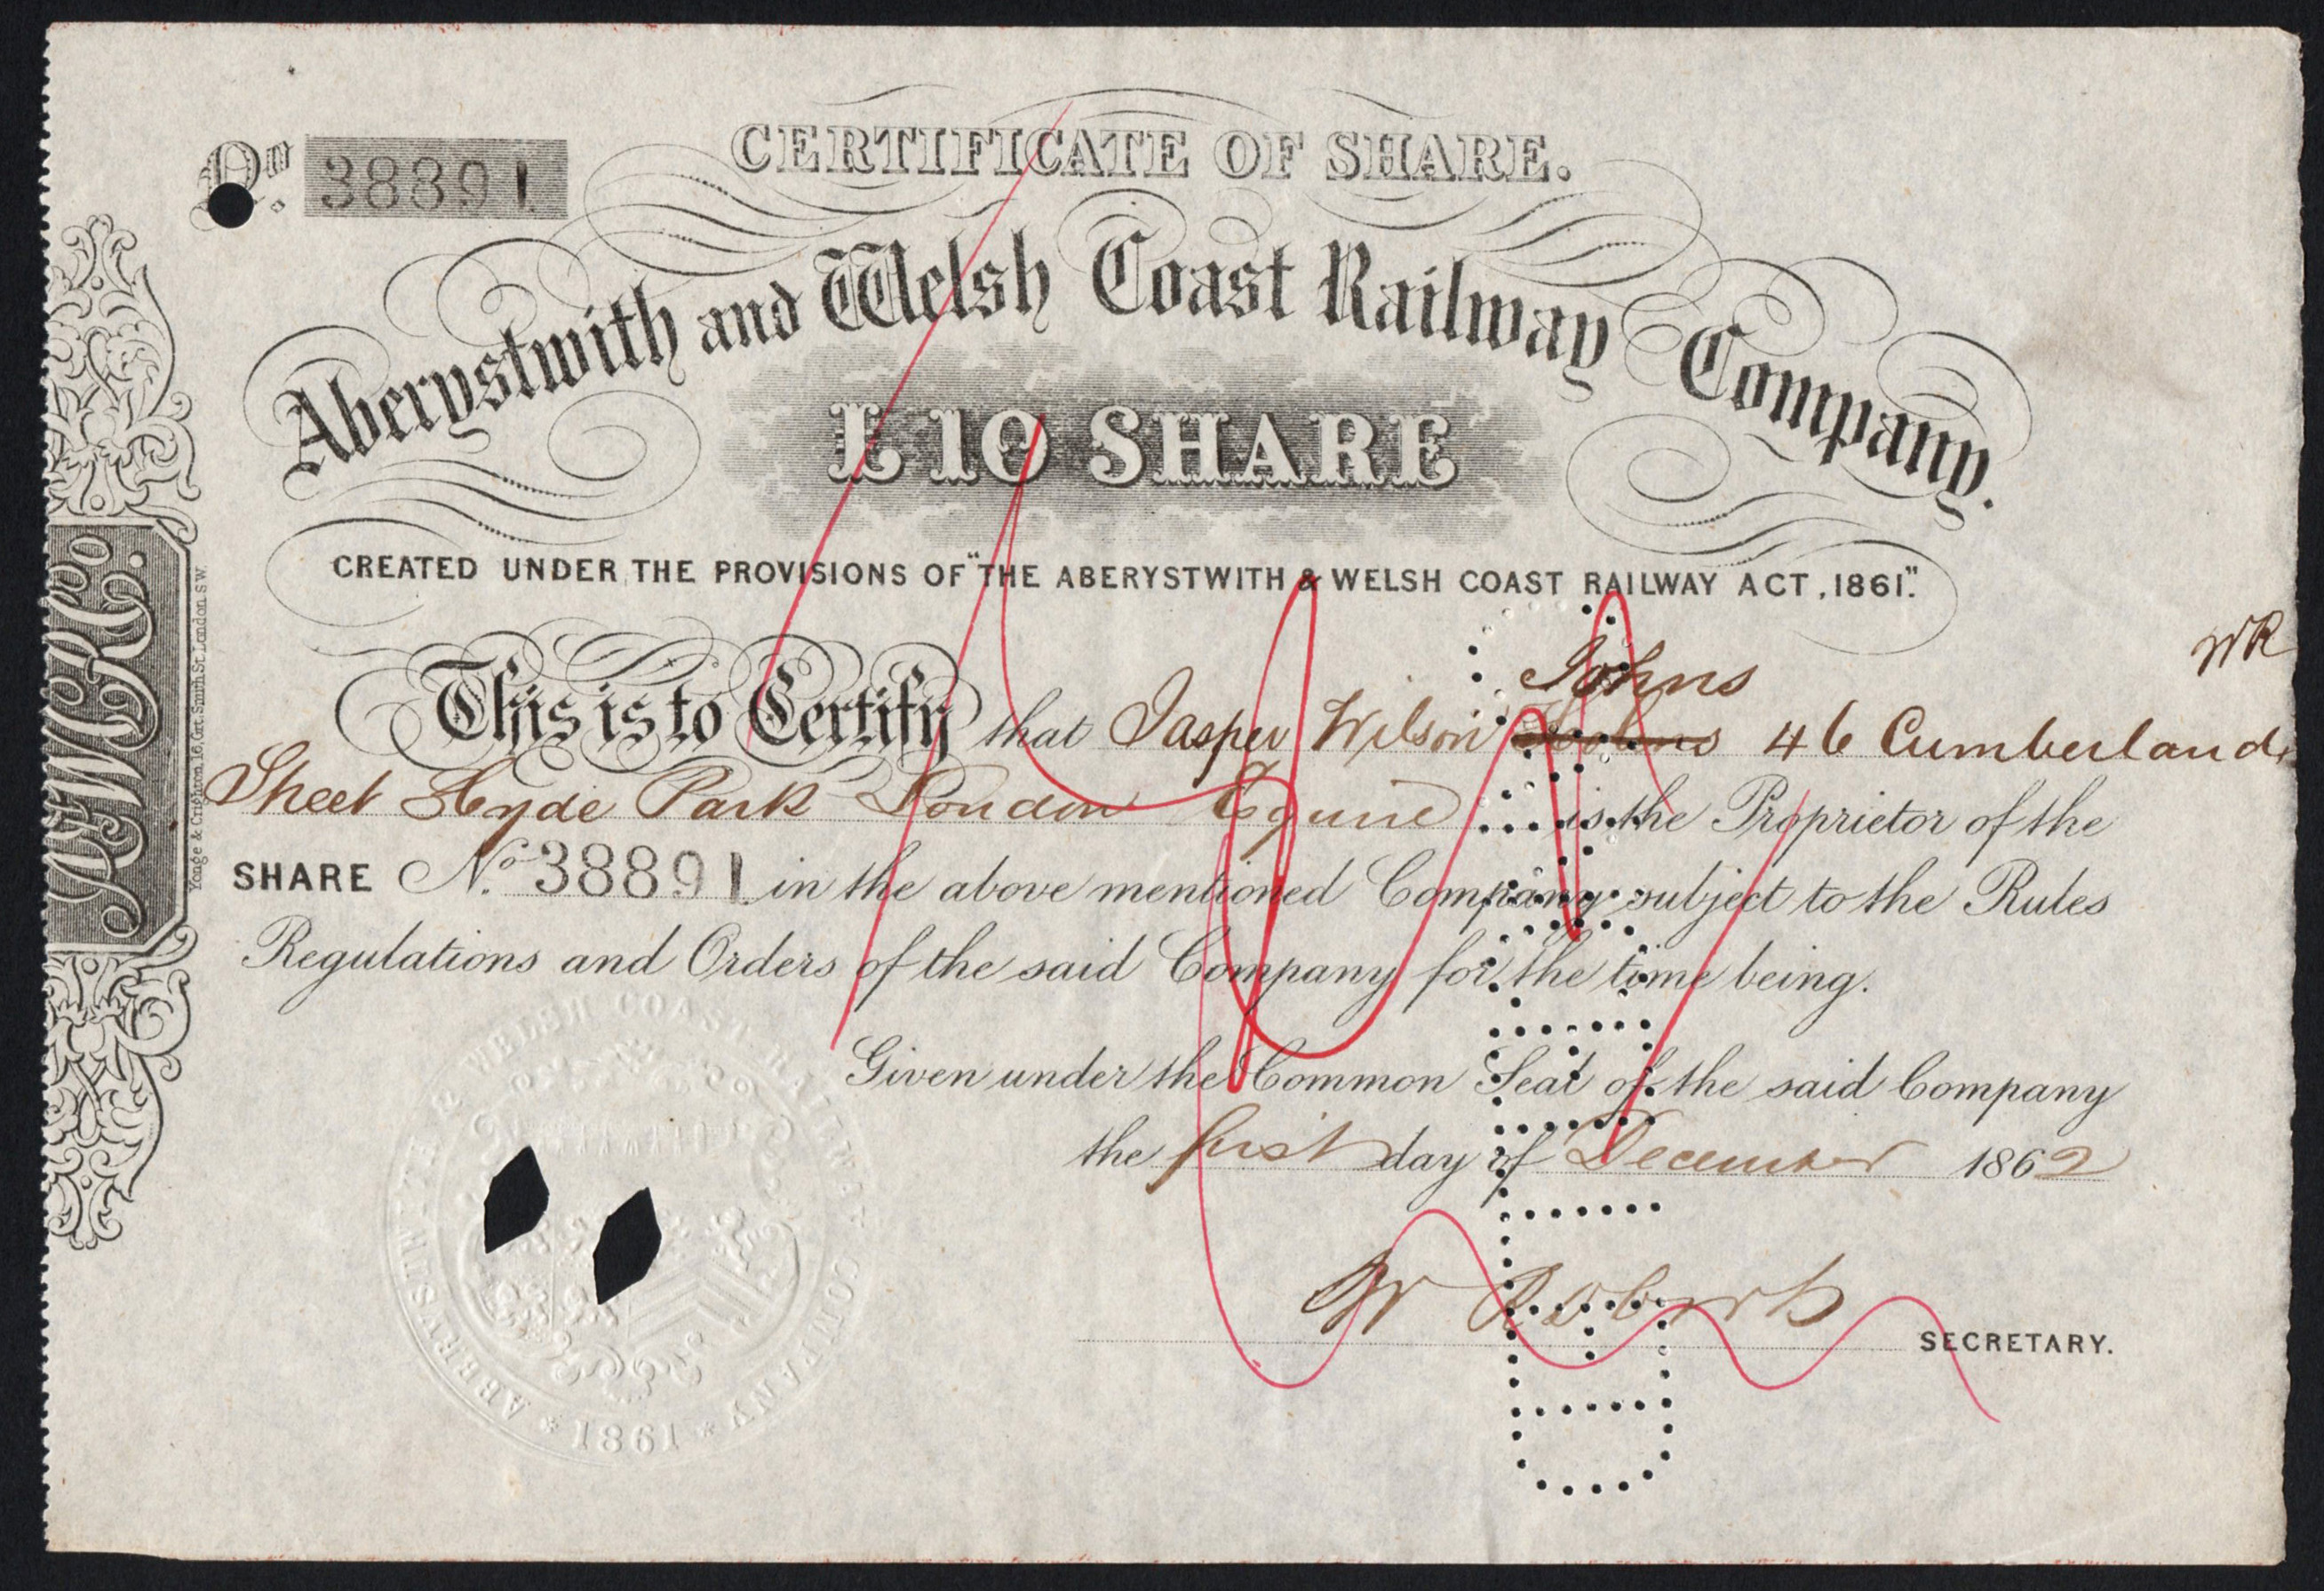 CERTIFICATE OF SHARE.
No. 38891
Aberystwith and Welsh Coast Railway Company.
£10 SHARE
CREATED UNDER THE PROVISIONS OF "THE ABERYSTWITH & WELSH COAST RAILWAY ACT, 1861".
WR
Johns
This is to Certify that Jasper Wilson 46 Cumberland
Street Hyde Park London Esquire is the Proprietor of the
SHARE No. 38891 in the above mentioned Company subject to the Rules
Regulations and Orders of the said Company for the time being.
Given under the Common Seal of the said Company
the first day of December 1862
W Roberts
SECRETARY.
A&WCRCo.
Yonge & Crighton, 16, Grt. Smith St. London S.W.
ABERYSTWITH & WELSH COAST RAILWAY COMPANY
1861
CANCELLED